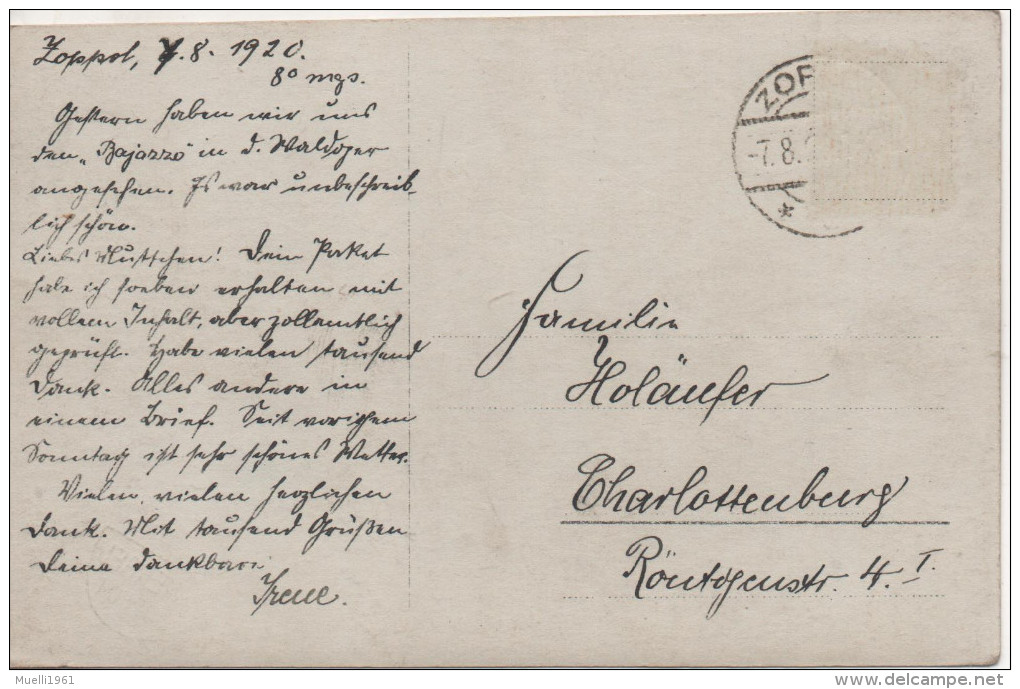 Zoppot, 7.8.1920.
8⁰ mgs.
Gestern haben wir uns
den „Bajazzo“ in d. Waldoper
angesehen. Es war unbeschreib-
lich schön.
Liebes Muttchen! Dein Paket
habe ich soeben erhalten mit
vollem Inhalt, aber zollamtlich
geprüft. Habe vielen tausend
Dank. Alles andere in
einem Brief. Seit vorigem
Sonntag ist sehr schönes Wetter.
Vielen, vielen herzlichen
Dank. Mit tausend Grüßen
Deine dankbare
Irene.
ZOP
-7.8.
Familie
Holäufer
Charlottenburg
Röntgenstr. 4. I.
Muelli1961